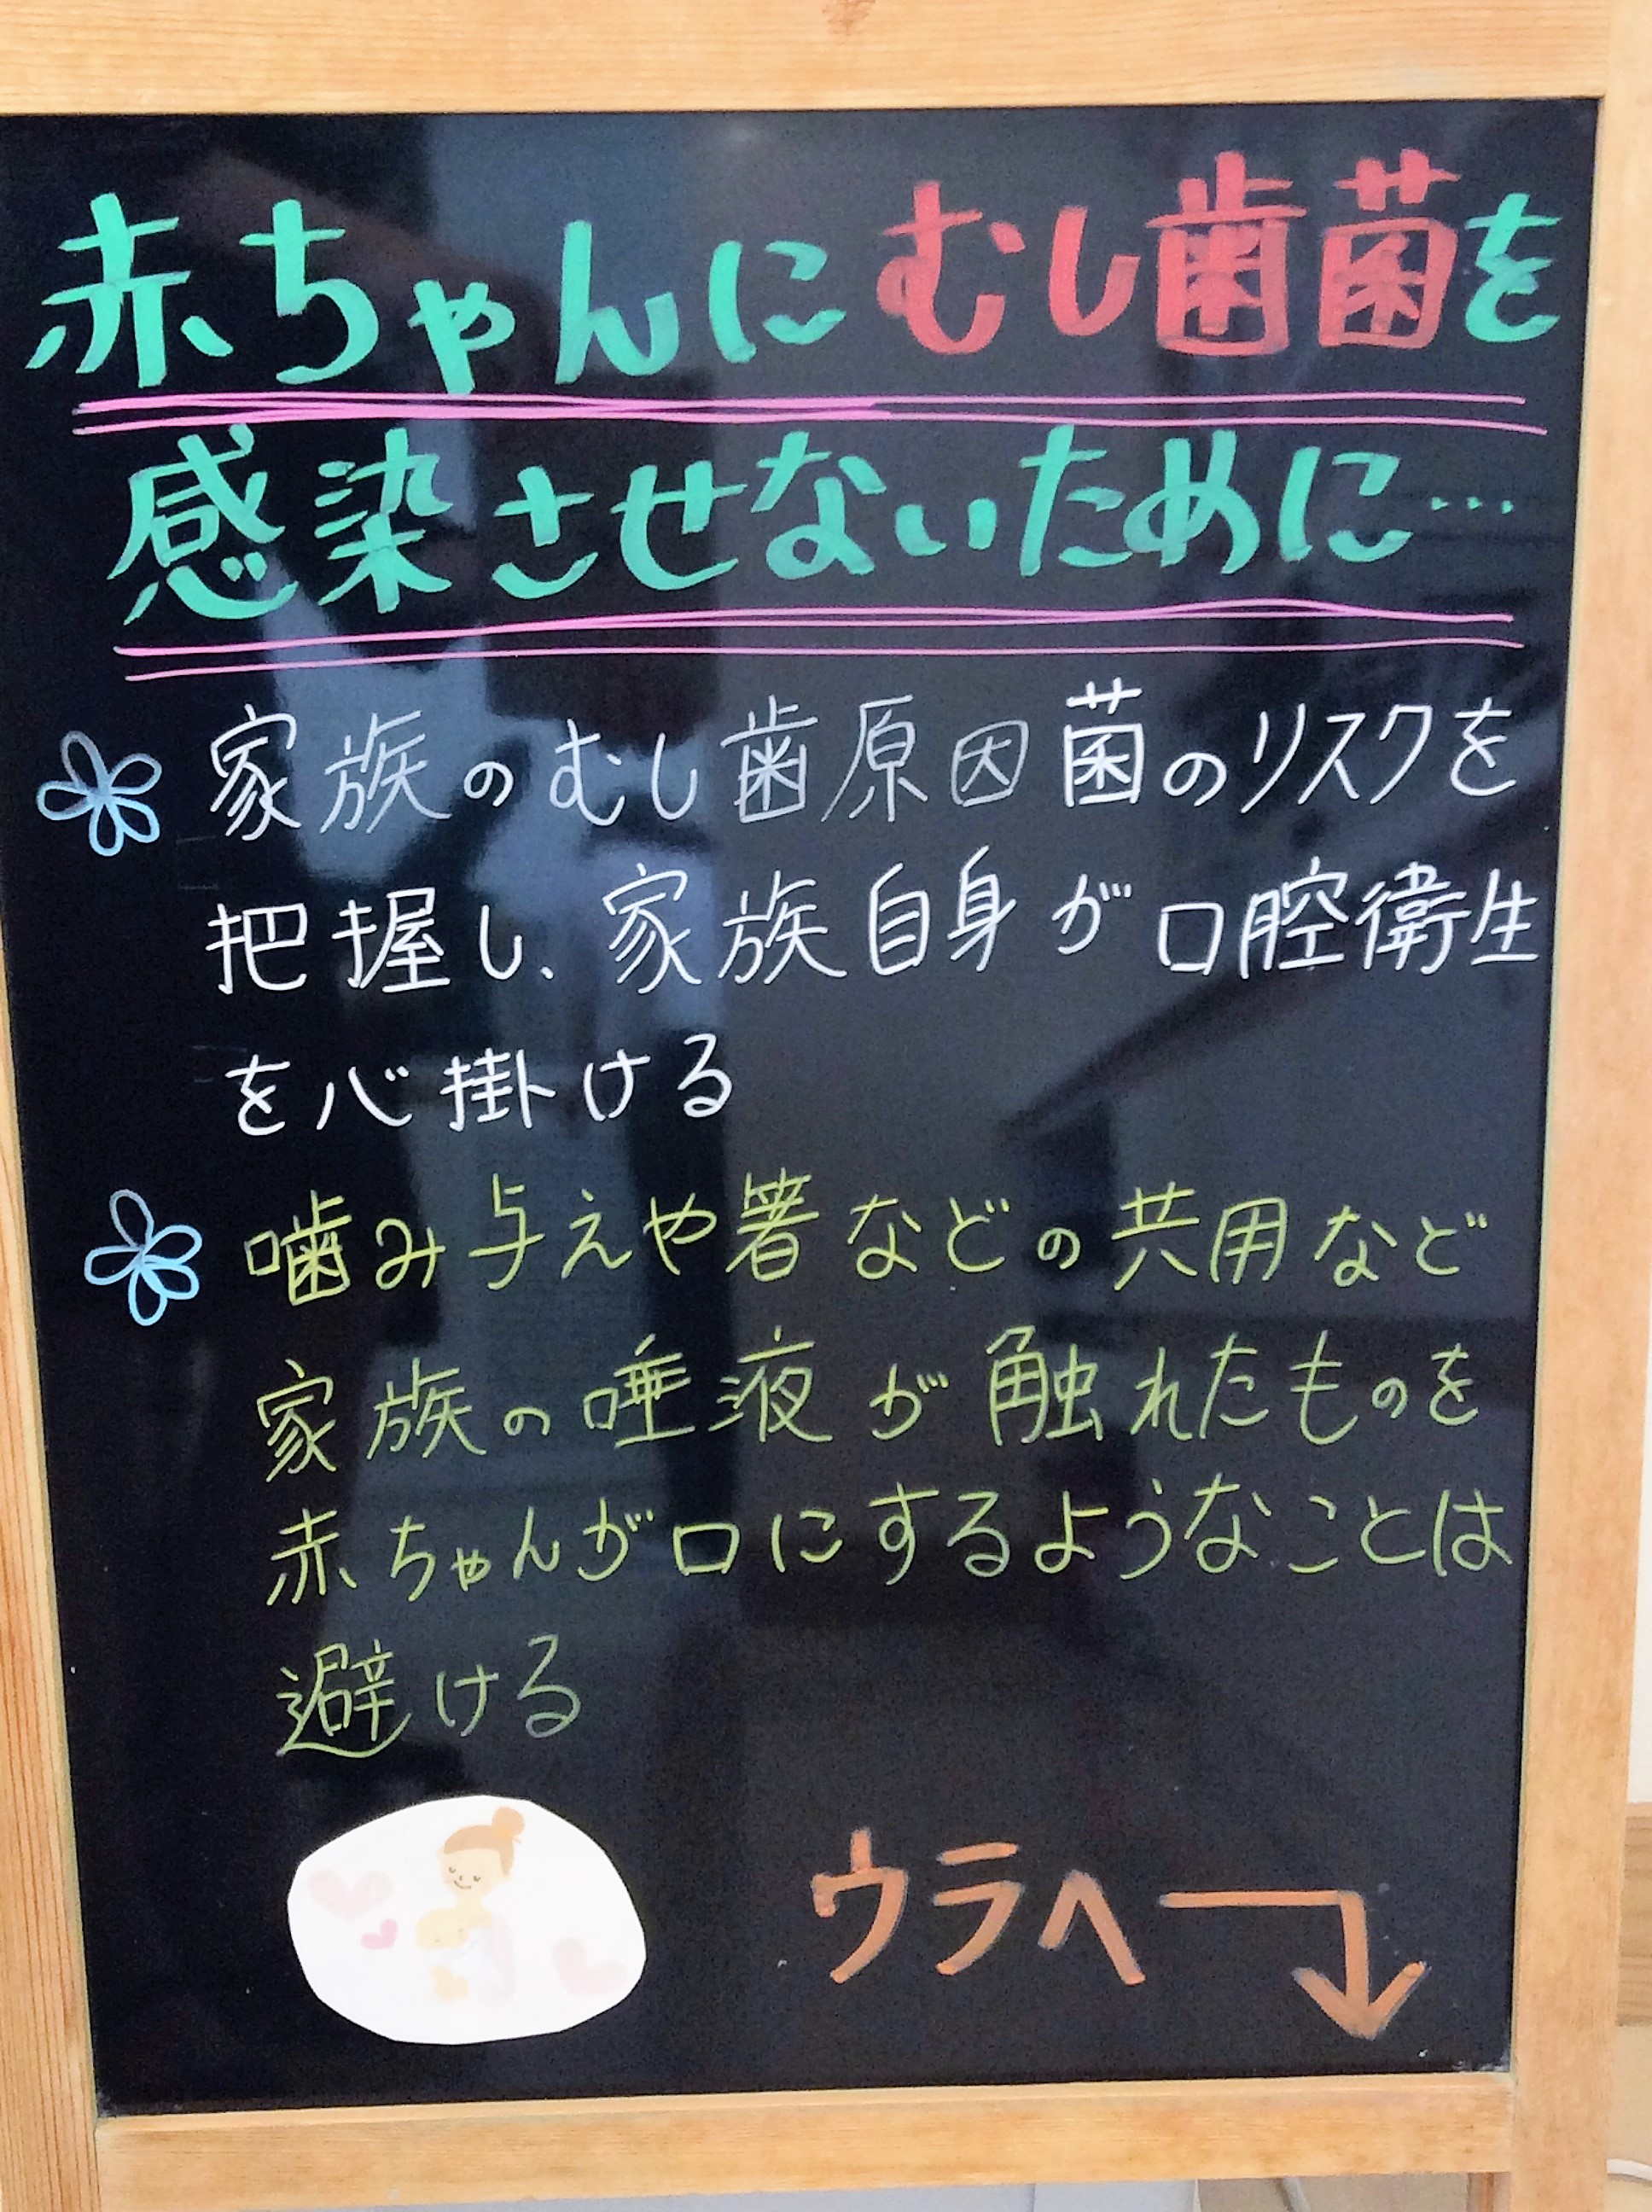 赤ちゃんにむし歯菌を
感染させないために…
家族のむし歯原因菌のリスクを
把握し、家族自身が口腔衛生
を心掛ける
噛み与えや箸などの共用など
家族の唾液が触れたものを
赤ちゃんが口にするようなことは
避ける
ウラへ